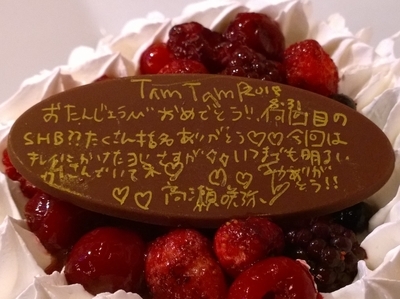 TAM TAM 2018
おたんじょうびおめでとう!! 何個目の
SHB?? たくさん指名ありがとう♡♡今回は
キレイにかけたヨ さすが いつまでも明るい
かずさんでいてネ♡ ありが
♡♡高瀬咲弥、 とう!!